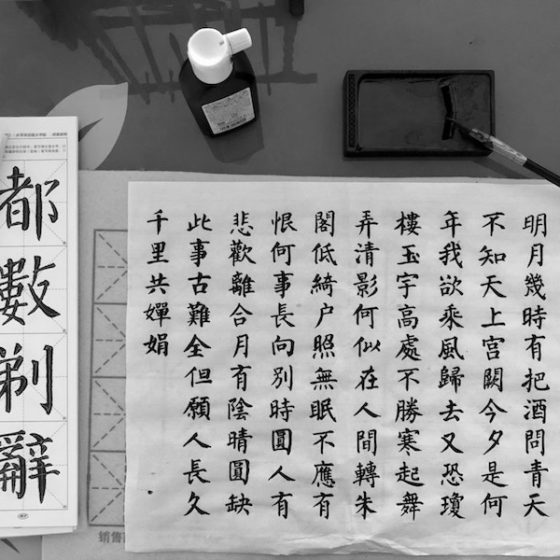 明月幾時有把酒問青天
不知天上宮闕今夕是何
年我欲乘風歸去又恐瓊
樓玉宇高處不勝寒起舞
弄清影何似在人間轉朱
閣低綺户照無眠不應有
恨何事長向別時圓人有
悲歡離合月有陰晴圓缺
此事古難全但願人長久
千里共嬋娟
都數剃辭
销售